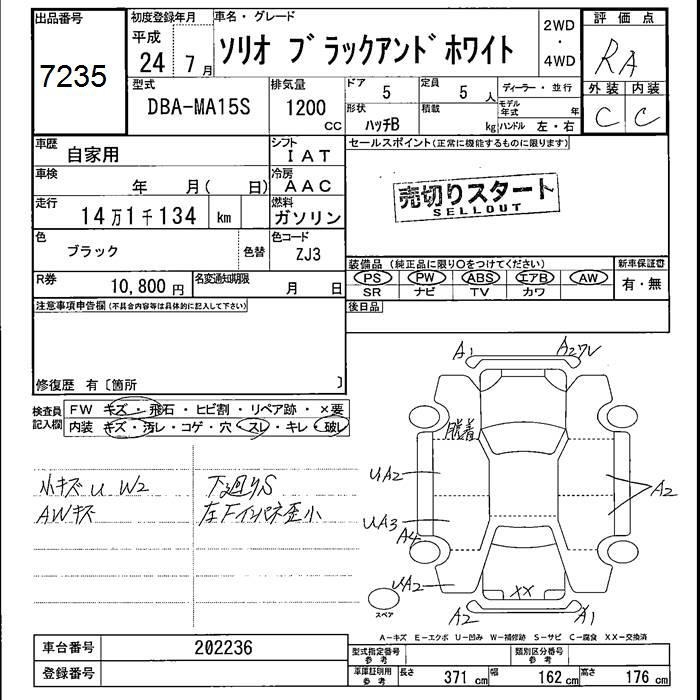 出品番号 初度登録年月 車名・グレード 2WD・4WD 評価点
7235 平成24 7月 ソリオ ブラックアンドホワイト RA
型式 排気量 ドア 5 定員 5人 ディーラー・並行 外装 内装
DBA-MA15S 1200CC 形状 ハッチB 積載 kg モデル年式 年 ハンドル 左・右 C C
車歴 自家用 シフト IAT セールスポイント(正常に機能するものに限ります)
車検 年 月( 日) 冷房 AAC
売切りスタート
SELLOUT
走行 14万1千134 km 燃料 ガソリン
色 ブラック 色替 色コード ZJ3
装備品(純正品に限り〇をつけてください) 新車保証書
PS PW ABS エアB AW 有・無
SR ナビ TV カワ
R券 10,800円 名変通知期限 月 日
後日品
注意事項申告欄(不具合内容等は具体的に記入して下さい)
修復歴 有〔箇所 〕
検査員記入欄 FW キズ・飛石・ヒビ割・リペア跡・×要
内装 キズ・汚レ・コゲ・穴・スレ・キレ・破レ
小キズ U W2 下廻りS
AWキズ 左Fインパネ歪小
A1 A2ワレ
脱着
UA2
A2
UA3
A4
UA2
XX
スペア
A2 A1
A-キズ E-エクボ U-凹み W-補修跡 S-サビ C-腐食 XX-交換済
車台番号 202236 型式指定番号 参考 類別区分番号 参考
登録番号 車庫証明用 参考 長さ 371cm 幅 162cm 高さ 176cm